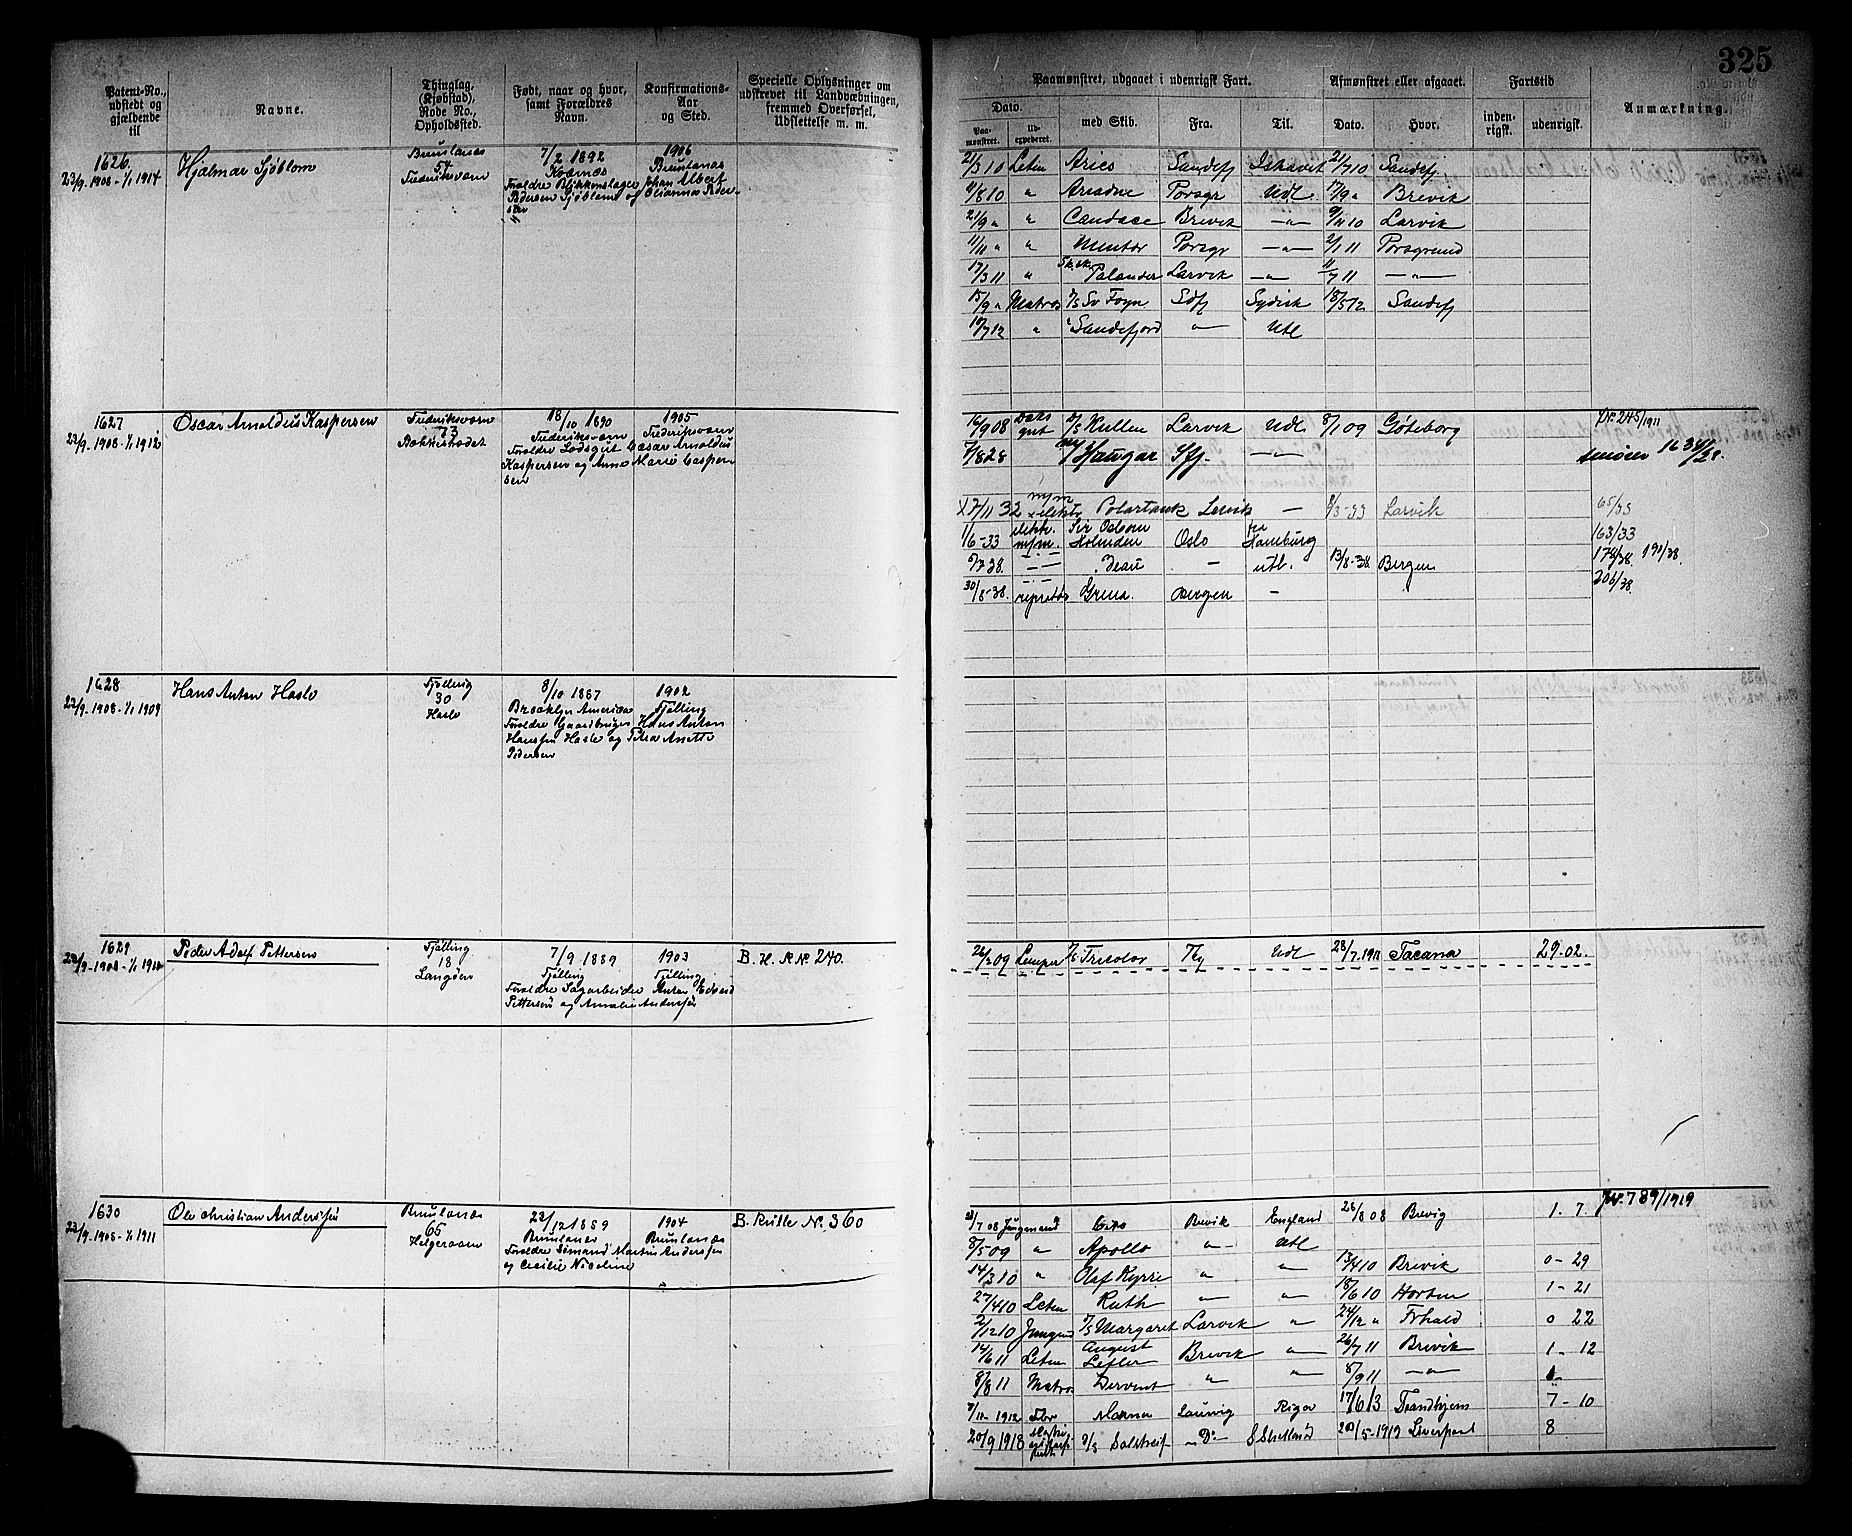 325
Patent-No., udstedt og gjældende til
Navne.
Thinglag, (Kjøbstad), Rode No., Opholdsted.
Født, naar og hvor, samt Forældres Navn.
Konfirmations-Aar og Sted.
Specielle Oplysninger om udskrevet til Landvæbningen, fremmed Overførsel, Udslettelse m. m.
Paamønstret, udgaaet i udenrigsk Fart.
Afmønstret eller afgaaet.
Fartstid
Anmærkning.
Dato.
Paamønstret.
Udexpederet.
med Skib.
Fra.
Til.
Dato.
Hvor.
indenrigsk.
udenrigsk.
1626.
23/9.1908-1/1 1914
Hjalmar Sjøblom
Brunlanæs
54
Frederiksværn
7/2 1892
Forældre Blikkenslager Johan Albert
Pedersen Sjøblom og
1906
Brunlanæs
2/3 10 Letm Aries Sandefj Ishavet 2/7 10 Sandefj
11/8 10 " Ariadne Porsgr Udl 17/9 " Brevik
21/9 " " Candace Brevik —"— 9/11 10 Larvik
11/11 " " Mentor Porsgr —"— 2/1 11 Porsgrund
17/3 11 " Palander Larvik —"— 11/7 11 —"—
15/9 " Matros Sv Foyn Sdfj Sydish 18/5 12 Sandefj
10/7 12 " Sandefjord —"— Utl
1627
23/9.1908-1/1 1912
Oscar Arnoldus Kaspersen
Frederiksværn
73
18/10 1890
Frederiksværn
Forældre Lodsgut Cæsar Arnoldus
Kaspersen og Anne Marie Caspersen
1905
Frederiksværn
16/9 08 Dæksgut Kullen Larvik Udl 8/1 09 Gøteborg
245/1911
7/8 28 Haugar Sfj. —"—
17/11 32 Polartank Larvik — 8/3-33 Larvik
65/33
1/6-33 m/m. Holmden Oslo Hamburg
163/33
7/7 38. —"— — utl. 13/8-38 Bergen
178/38. 190/38
30/8-38. Grena. Bergen —
206/38
1628
23/9.1908-1/1 1909
Hans Anton Haslo
Fjölling
30
Haslo
8/10 1887
Brooklyn Amerika
Forældre Gaardbruger Hans Anton
Hanssen Haslo og Petra Anette
Pedersen
1902
Fjölling
1629
23/9-1908-1/1 1910
Peder Adolf Pettersen
Fjölling
18
Langøen
7/9 1889
Fjölling
Forældre Sagarbeider Anton Edvard
Pettersen og Amalie Anderssen
1903
Fjölling
B. H. R No. 240.
26/2 09 Tricolor Udl 28/7.1911 Tacana 29.02.
1630
23/9.1908-1/1 1911
Ole Christian Anderssen
Brunlanæs
65
Helgeroaen
23/12 1889
Brunlanæs
Forældre Sømand Martin Anderssen
og Cecilie Nicoline
1904
Brunlanæs
B. Rulle No. 360
789/1919
7 08 Jungmand Brevik England 28/8 08 Brevig 1. 7.
8/5 09 " Apollo —"— Utl
14/3 10 " Olaf Kyrre " " 13/4 10 Brevik 0-29
27/4 10 Letm Ruth —"— " 18/6 10 Horten 1-21
2/12 10 Jungmd Margaret Larvik " 24/12 " Frhald 0 22
14/6 11 Letm August Lefler Brevik " 26/7 11 Brevik 1-12
8/8 11 Matros Dervent " " 8/9 11 —"— 1
11-1912 Laurvig Riga 17/6 13 Trondhjem 7-10
20/9 1918 Matros Salstreif —Do— 20/5-1919 Liverpool 8